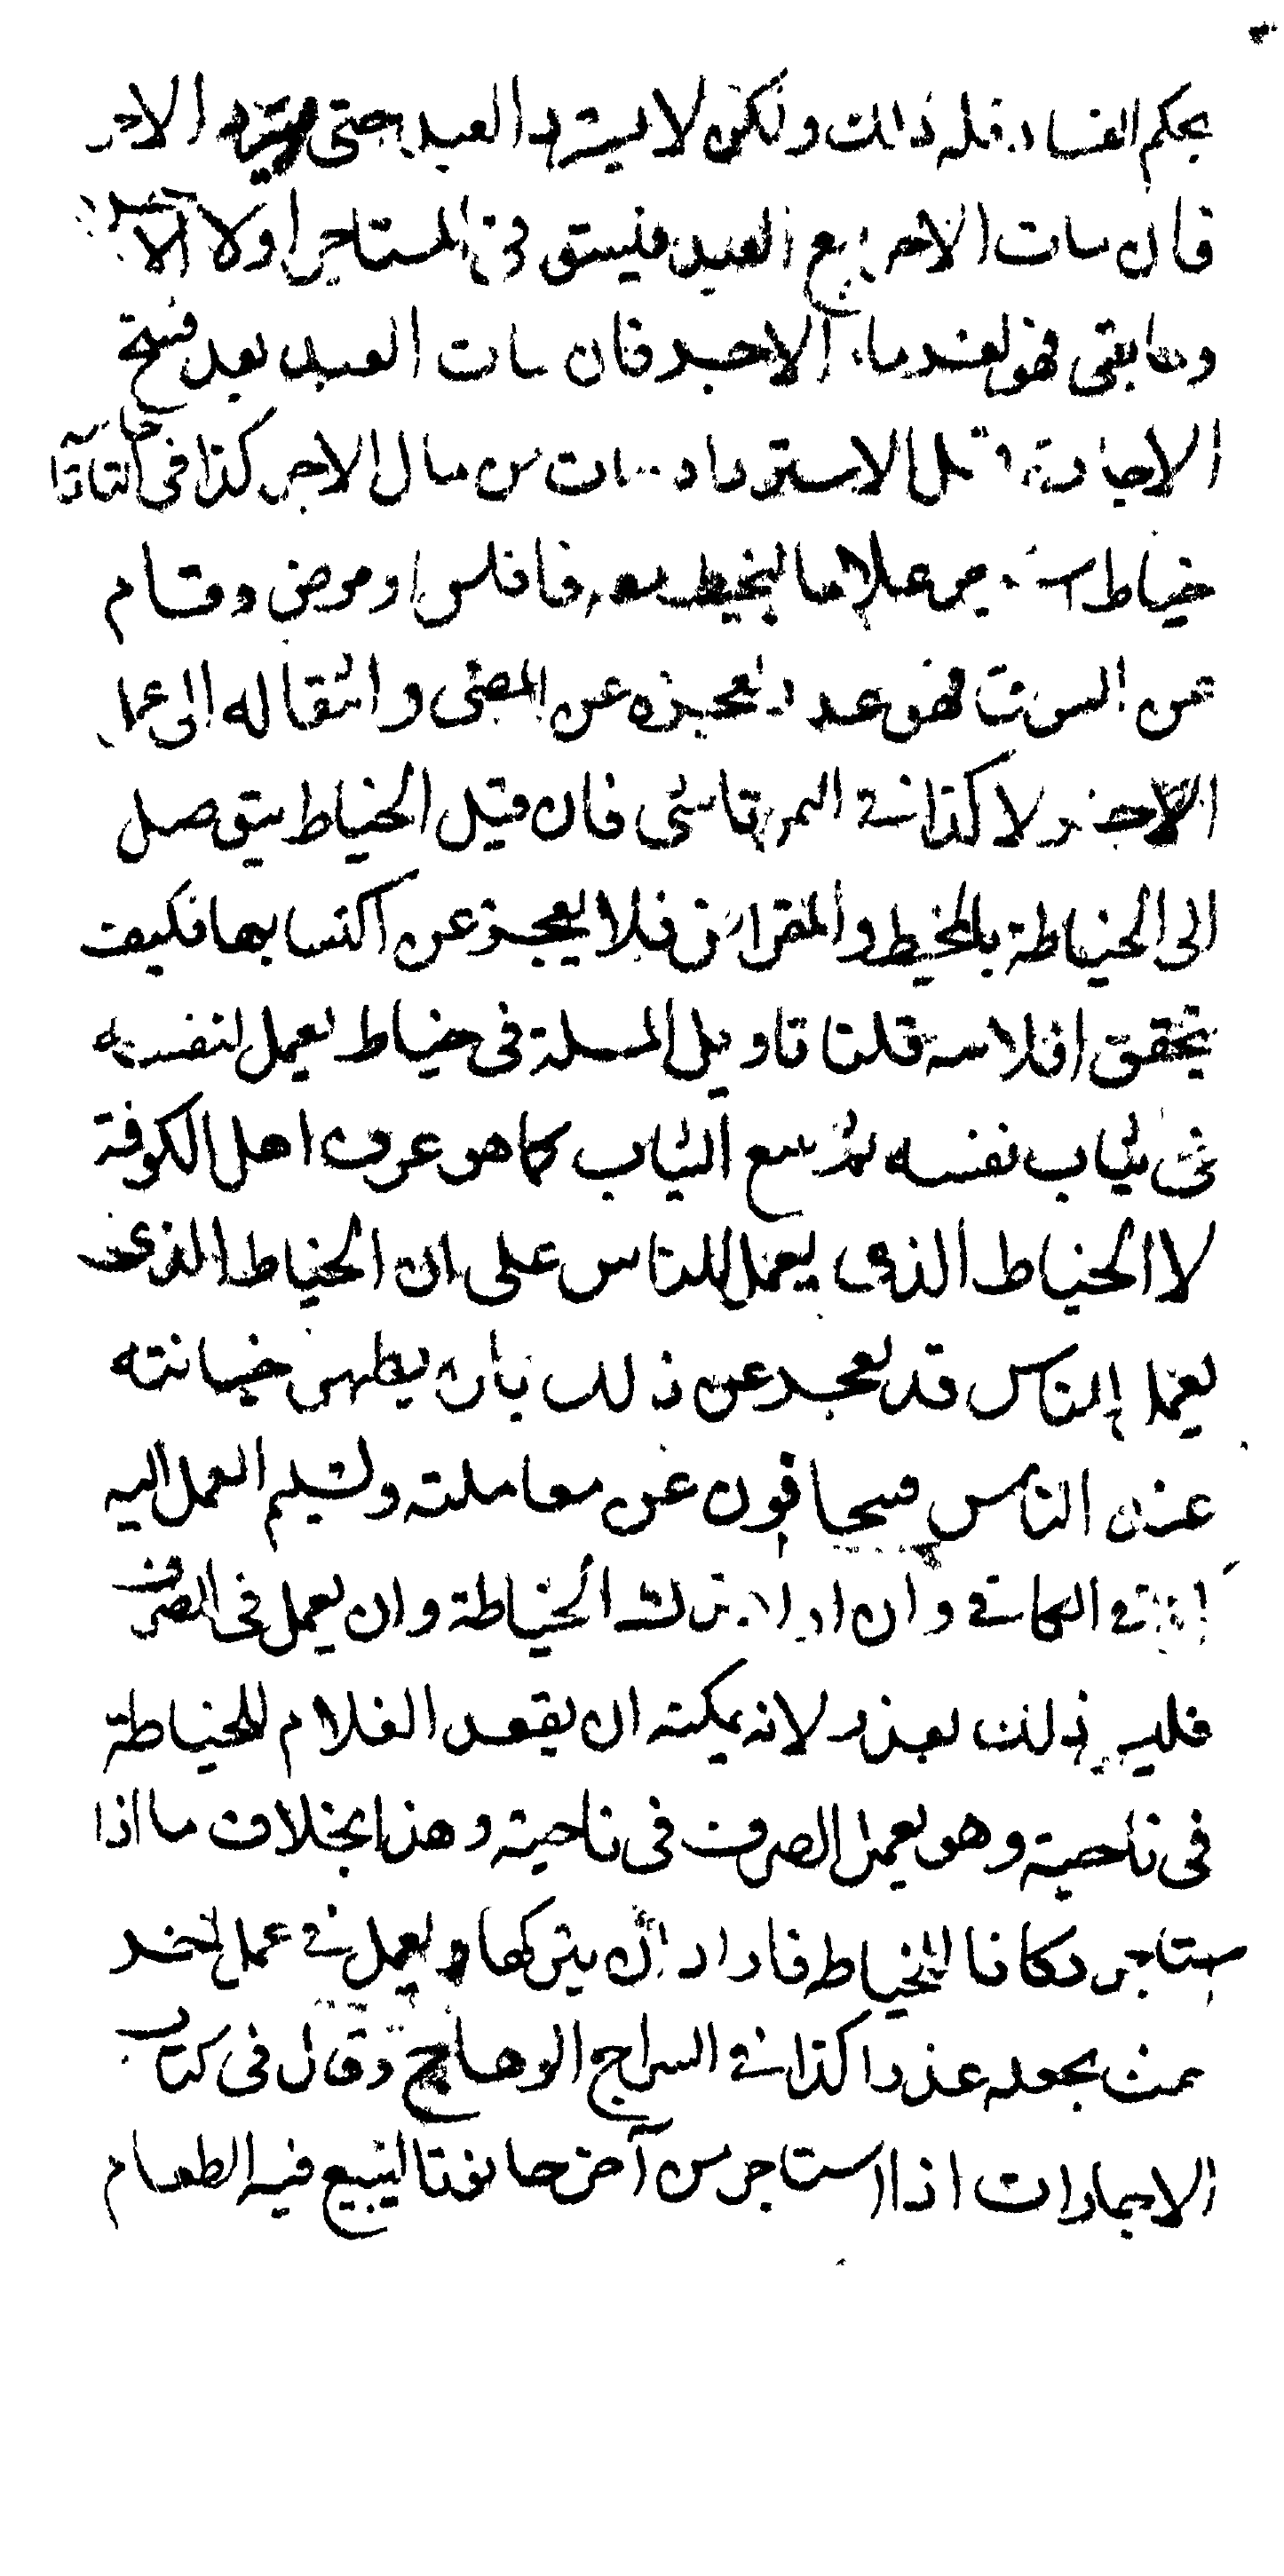 بحكم الفساد فله ذلك ولكن لا يسترد العبد حتى يرد الاجر
فان مات الاجر بيع العبد فيستوفي المستاجر اولا الا
وما بقى فهو لغرماء الاجر فان مات العبد بعد فسخ
الاجارة قبل الاسترداد مات من مال الاجر كذا فى
خياط استاجر غلاما ليخيط معه فافلس او مرض وقام
من السوق فهو عذر لعجزه عن المضى وانتقاله الى عمل
الاجر لا كذا في التمرتاشى فان قيل الخياط يتوصل
الى الخياطة بالمخيط والمقراض فلا يعجز عن اكتسابها فكيف
يتحقق افلاسه قلنا تاويل المسلة فى خياط يعمل لنفسه
فى ثياب نفسه ثم يبيع الثياب كما هو عرف اهل الكوفة
لا الخياط الذى يعمل للناس على ان الخياط الذى
يعمل للناس قد يعجز عن ذلك بان يظهر خيانته
عند الناس فيتجافون عن معاملته وتسليم العمل اليه
كذا في الكافي وان اراد ترك الخياطة وان يعمل فى الصرف
فليس ذلك بعذر لانه يمكنه ان يقعد الغلام للخياطة
فى ناحية وهو يعمل الصرف فى ناحية وهذا بخلاف ما اذا
استاجر دكانا للخياطه فاراد ان يتركها ويعمل في عمل اخر
حيث يجعله عذرا كذا في السراج الوهاج وقال فى كتاب
الاجارات اذا استاجر من آخر حانوتا ليبيع فيه الطعام